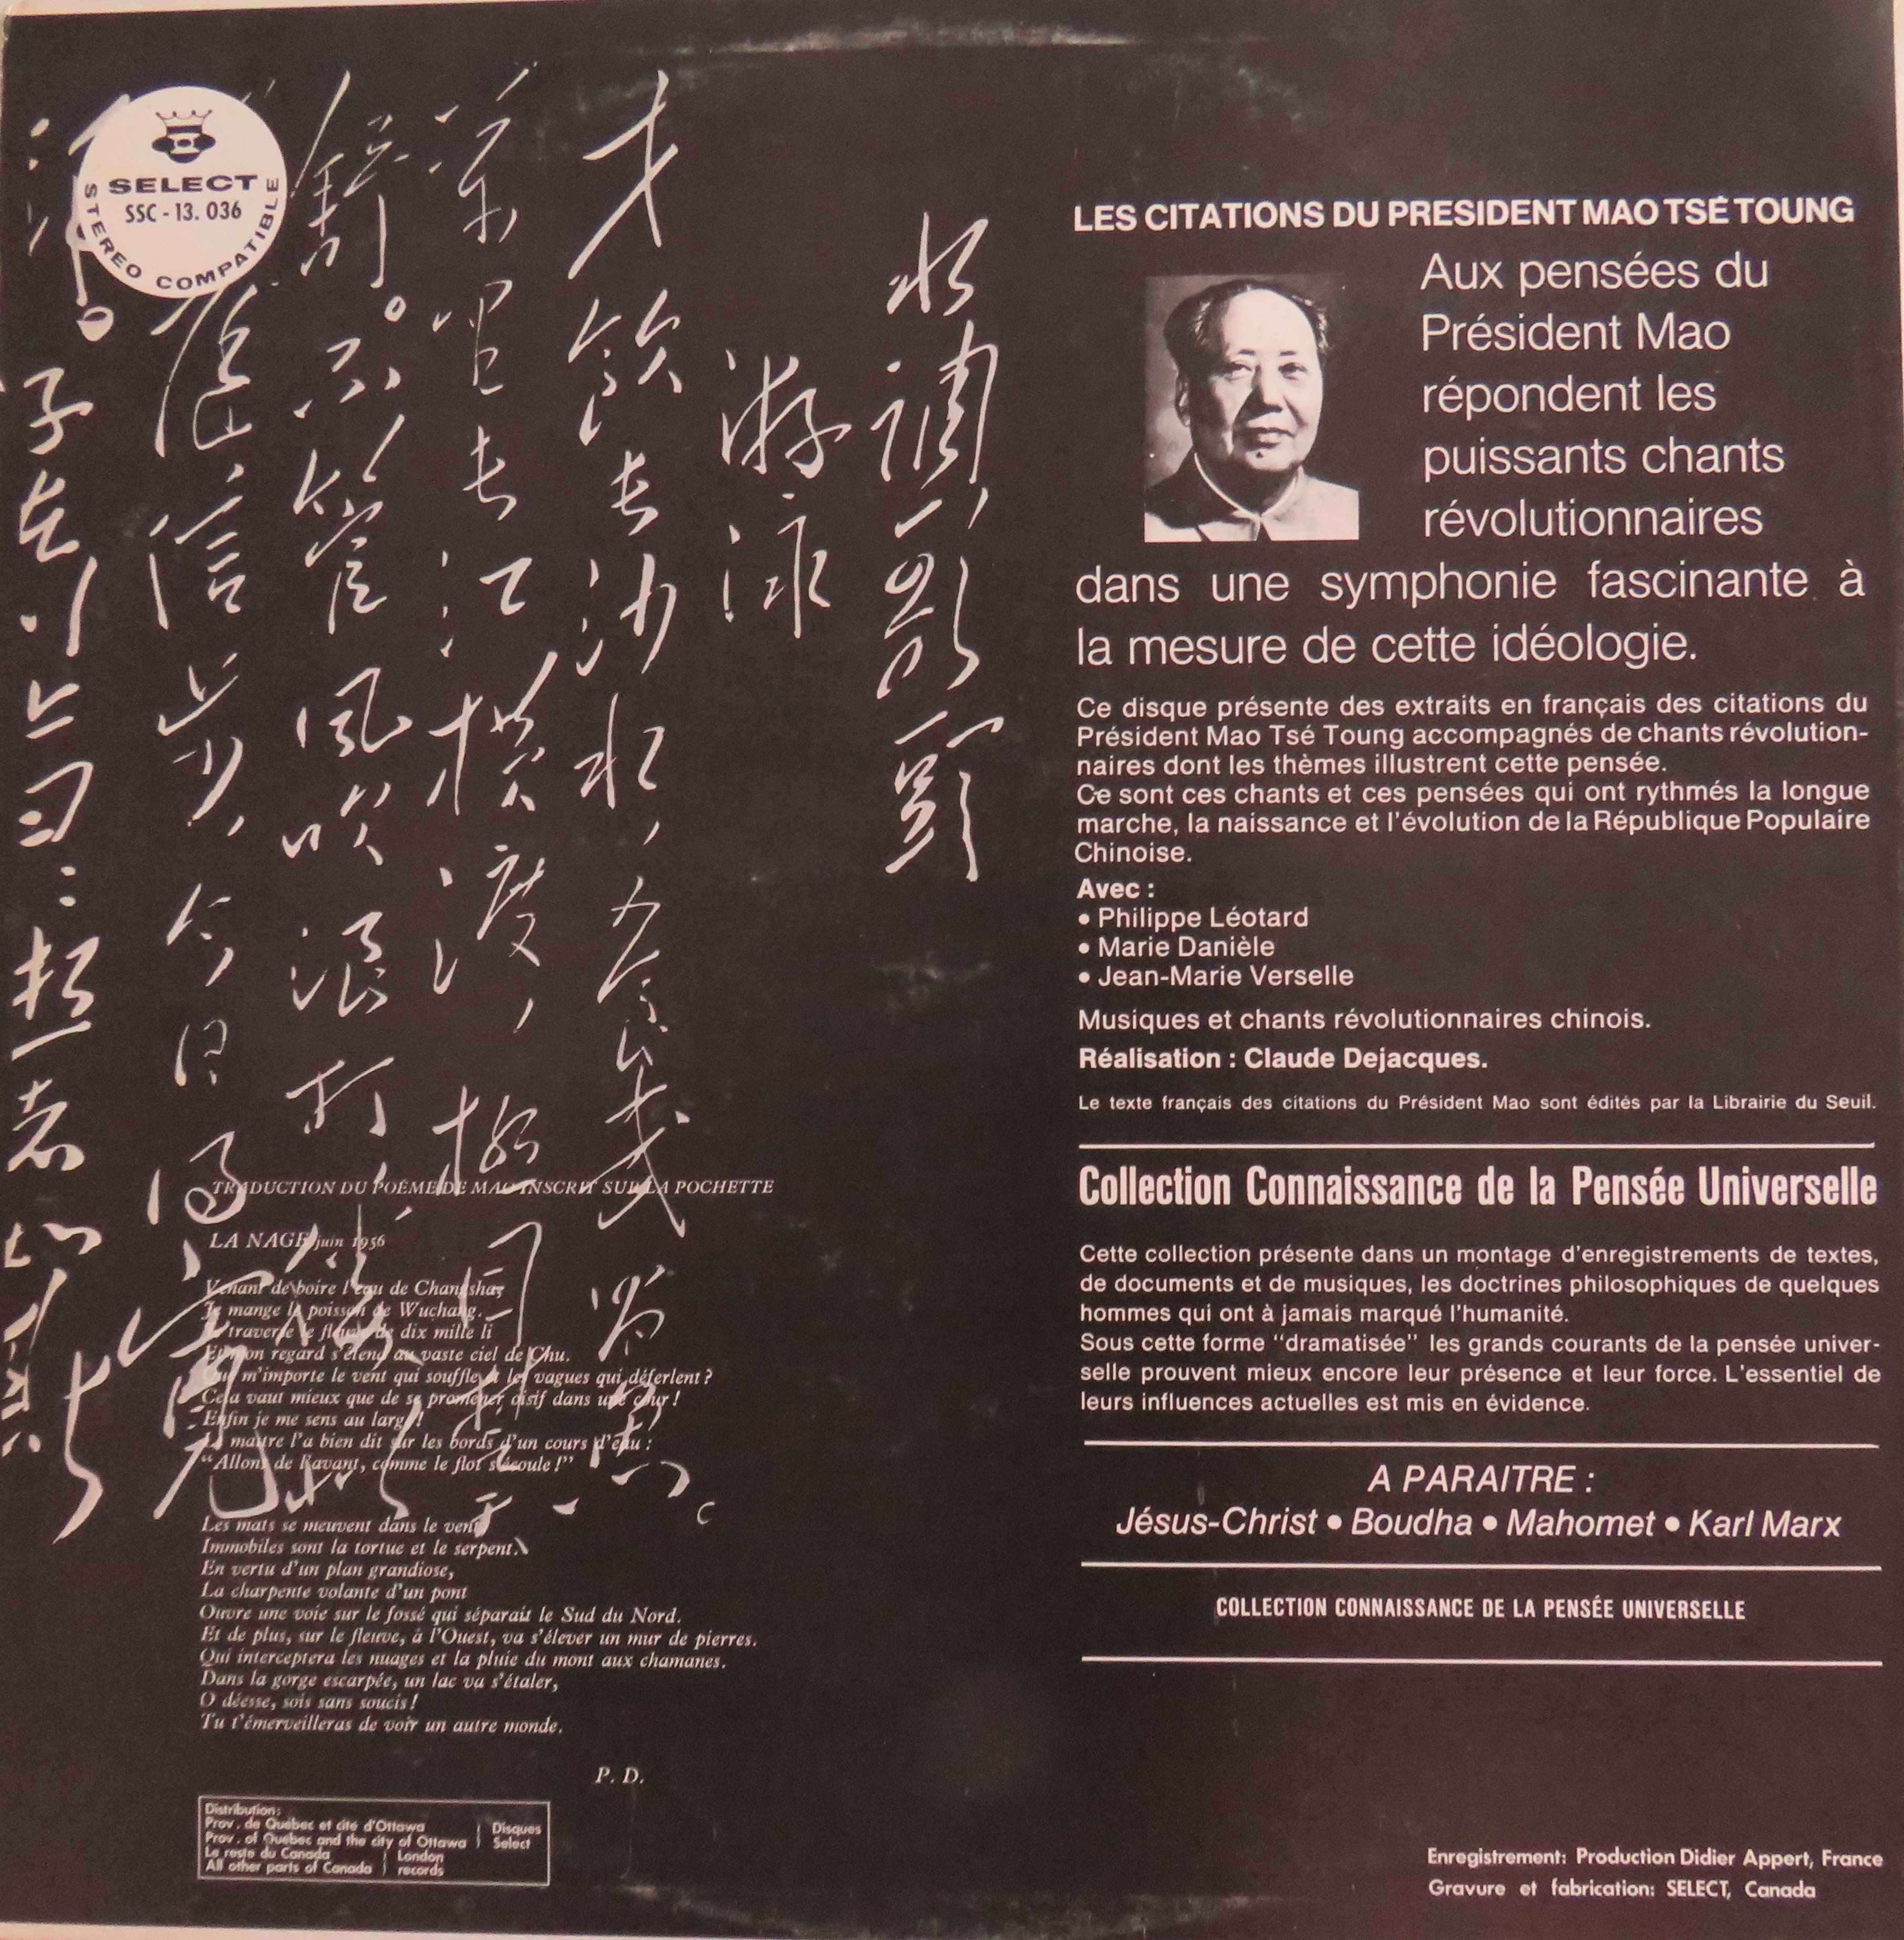 水調歌頭
游泳
才飲長沙水,又食武昌魚。
萬里長江橫渡,極目楚天
舒。不管風吹浪打,勝似
庭信步,今日得寬
。子在川上曰:逝者如斯夫
SELECT
SSC - 13. 036
STEREO COMPATIBLE
TRADUCTION DU POÈME DE MAO INSCRIT SUR LA POCHETTE
LA NAGE juin 1956
Venant de boire l'eau de Changsha,
Je mange le poisson de Wuchang.
Je traverse le fleuve de dix mille li
Et mon regard s'étend au vaste ciel de Chu.
Que m'importe le vent qui souffle et les vagues qui déferlent ?
Cela vaut mieux que de se promener oisif dans une cour !
Enfin je me sens au large !
Le maître l'a bien dit sur les bords d'un cours d'eau :
"Allons de l'avant, comme le flot s'écoule !"
Les mats se meuvent dans le vent,
Immobiles sont la tortue et le serpent.
En vertu d'un plan grandiose,
La charpente volante d'un pont
Ouvre une voie sur le fossé qui séparait le Sud du Nord.
Et de plus, sur le fleuve, à l'Ouest, va s'élever un mur de pierres.
Qui interceptera les nuages et la pluie du mont aux chamanes.
Dans la gorge escarpée, un lac va s'étaler,
O déesse, sois sans soucis !
Tu t'émerveilleras de voir un autre monde.
P. D.
Distribution:
Prov. de Québec et cité d'Ottawa
Prov. of Québec and the city of Ottawa
Disques
Select
Le reste du Canada
All other parts of Canada
London
records
LES CITATIONS DU PRESIDENT MAO TSÉ TOUNG
Aux pensées du
Président Mao
répondent les
puissants chants
révolutionnaires
dans une symphonie fascinante à
la mesure de cette idéologie.
Ce disque présente des extraits en français des citations du
Président Mao Tsé Toung accompagnés de chants révolution-
naires dont les thèmes illustrent cette pensée.
Ce sont ces chants et ces pensées qui ont rythmés la longue
marche, la naissance et l'évolution de la République Populaire
Chinoise.
Avec :
• Philippe Léotard
• Marie Danièle
• Jean-Marie Verselle
Musiques et chants révolutionnaires chinois.
Réalisation : Claude Dejacques.
Le texte français des citations du Président Mao sont édités par la Librairie du Seuil.
Collection Connaissance de la Pensée Universelle
Cette collection présente dans un montage d'enregistrements de textes,
de documents et de musiques, les doctrines philosophiques de quelques
hommes qui ont à jamais marqué l'humanité.
Sous cette forme "dramatisée" les grands courants de la pensée univer-
selle prouvent mieux encore leur présence et leur force. L'essentiel de
leurs influences actuelles est mis en évidence.
A PARAITRE :
Jésus-Christ • Boudha • Mahomet • Karl Marx
COLLECTION CONNAISSANCE DE LA PENSÉE UNIVERSELLE
Enregistrement: Production Didier Appert, France
Gravure et fabrication: SELECT, Canada